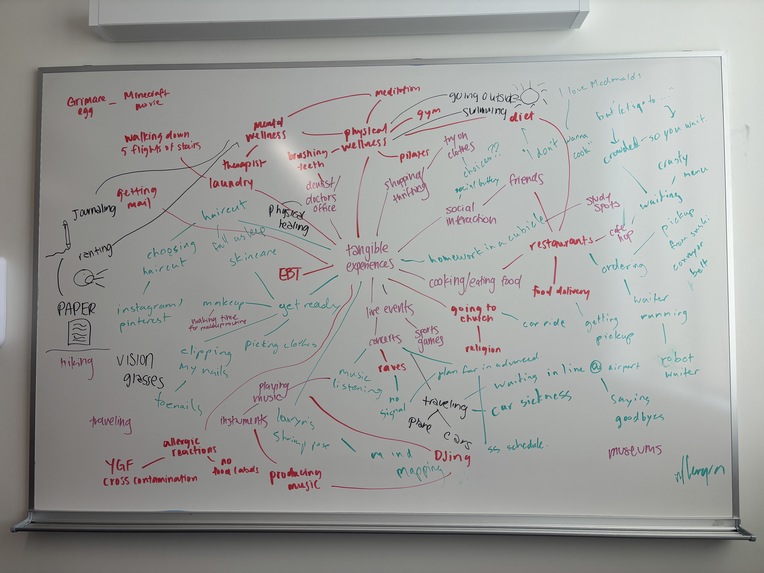 Grimace egg - Minecraft movie
walking down
5 flights of stairs
getting
mail
mental
wellness
therapist
laundry
brushing
teeth
dentist/
doctors
office
physical
healing
physical
wellness
meditation
gym
pilates
going outside
swimming
diet
I love Mcdonalds
don't
wanna
cook
but let's go to...
crowded → so you wait
waiting
crusty
menu
pickup
from sushi
conveyor
belt
Journaling
ranting
PAPER
hiking
VISION
glasses
traveling
haircut
fall asleep
skincare
choosing
haircut
instagram/
pinterest
makeup
making time
for makeup routine
get ready
clipping
my nails
toenails
picking clothes
EBT
tangible
experiences
shopping/
thrifting
try on
clothes
choices??
social battery
social
interaction
friends
homework in a cubicle
study
spots
cafe
hop
restaurants
ordering
waiter
running
robot
waiter
cooking/eating food
food delivery
getting
pickup
going to
church
religion
car ride
live events
concerts
sports
games
raves
no
signal
music
listening
plan far in advanced
waiting in line @ airport
saying
goodbyes
traveling
plane
cars
car sickness
ss schedule
playing
music
instruments
lauryn's
shrimp pose
mind
mapping
DJing
producing
music
allergic
reactions
YGF
cross contamination
no
food labels
museums